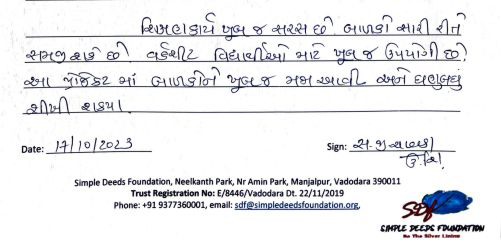 શિક્ષણકાર્ય ખુબ જ સરસ છે. બાળકો સારી રીતે
સમજી શકે છે. વર્કશીટ વિદ્યાર્થીઓ માટે ખુબ જ ઉપયોગી છે.
આ પ્રોજેકટ માં બાળકોને ખુબ જ મજા આવી અને ઘણુબધુ
શીખી શકયા.
Date: 17/10/2023 Sign:
Simple Deeds Foundation, Neelkanth Park, Nr Amin Park, Manjalpur, Vadodara 390011
Trust Registration No: E/8446/Vadodara Dt. 22/11/2019
Phone: +91 9377360001, email: sdf@simpledeedsfoundation.org,
SDF
SIMPLE DEEDS FOUNDATION
Be The Silver Lining